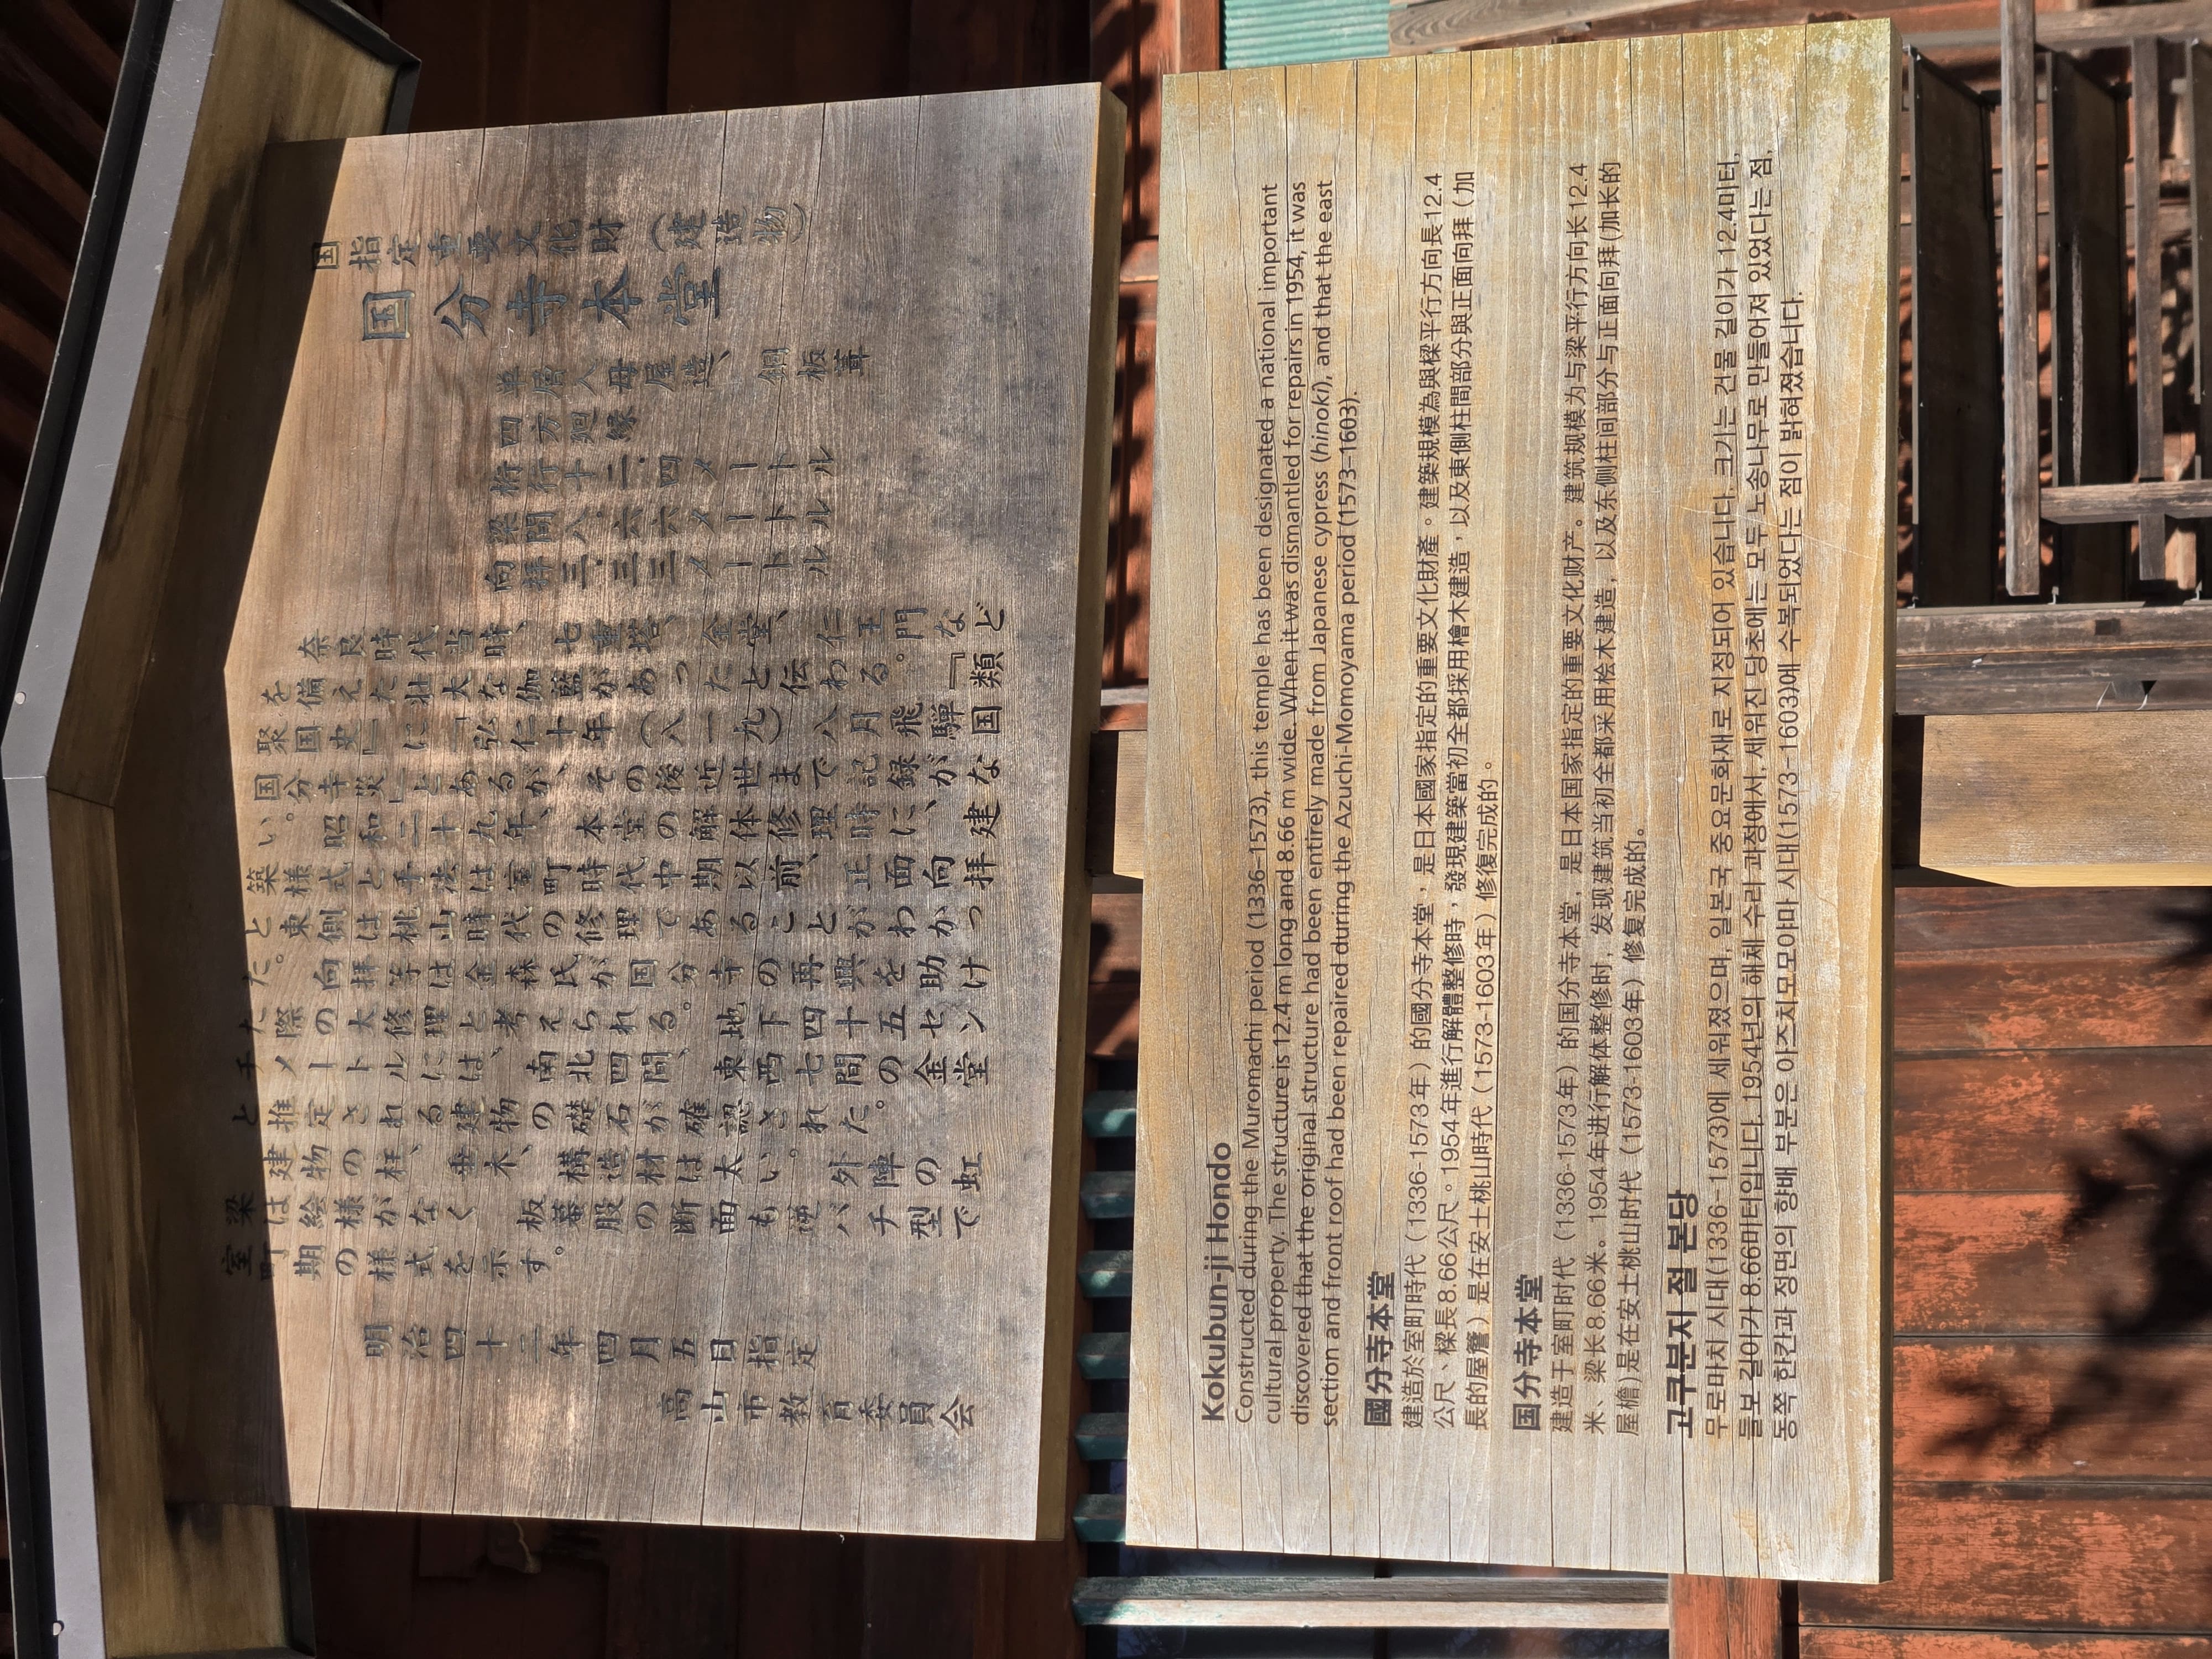 国指定重要文化財（建造物）
国分寺本堂
単層入母屋造、銅板葺
四方廻縁
桁行十二.四メートル
梁間八.六六メートル
向拝三.三三メートル
奈良時代当時、七重塔、金堂、仁王門など
を備えた壮大な伽藍があったと伝わる。『類
聚国史』に「弘仁十年（八一九）八月飛騨国
国分寺災」とあるが、その後近世まで記録がな
い。昭和二十九年、本堂の解体修理時に、建
築様式と手法は室町時代中期以前、正面向拝
と東側は桃山時代の修理であることがわかっ
た。向拝等は金森氏が国分寺の再興を助け
た際の大修理と考えられる。地下四十五セン
チメートルには、南北四間、東西七間の金堂
と推定される建物の礎石が確認された。
建物の柱、垂木、構造材は太い。外陣の虹
梁は絵様がなく 板蟇股の断面も逆バチ型で
室町期の様式を示す。
明治四十二年四月五日指定
高山市教育委員会
Kokubun-ji Hondo
Constructed during the Muromachi period (1336–1573), this temple has been designated a national important
cultural property. The structure is 12.4 m long and 8.66 m wide. When it was dismantled for repairs in 1954, it was
discovered that the original structure had been entirely made from Japanese cypress (hinoki), and that the east
section and front roof had been repaired during the Azuchi-Momoyama period (1573–1603).
國分寺本堂
建造於室町時代（1336-1573年）的國分寺本堂，是日本國家指定的重要文化財產。建築規模為與樑平行方向長12.4
公尺、樑長8.66公尺。1954年進行解體整修時，發現建築當初全都採用檜木建造，以及東側柱間部分與正面向拜（加
長的屋簷）是在安土桃山時代（1573-1603年）修復完成的。
国分寺本堂
建造于室町时代（1336-1573年）的国分寺本堂，是日本国家指定的重要文化财产。建筑规模为与梁平行方向长12.4
米、梁长8.66米。1954年进行解体整修时，发现建筑当初全都采用桧木建造，以及东侧柱间部分与正面向拜(加长的
屋檐)是在安土桃山时代（1573-1603年）修复完成的。
고쿠분지 절 본당
무로마치 시대(1336–1573)에 세워졌으며, 일본국 중요문화재로 지정되어 있습니다. 크기는 건물 길이가 12.4미터,
들보 길이가 8.66미터입니다. 1954년의 해체 수리 과정에서, 세워진 당초에는 모두 노송나무로 만들어져 있었다는 점,
동쪽 한칸과 정면의 향배 부분은 아즈치모모야마 시대(1573–1603)에 수복되었다는 점이 밝혀졌습니다.